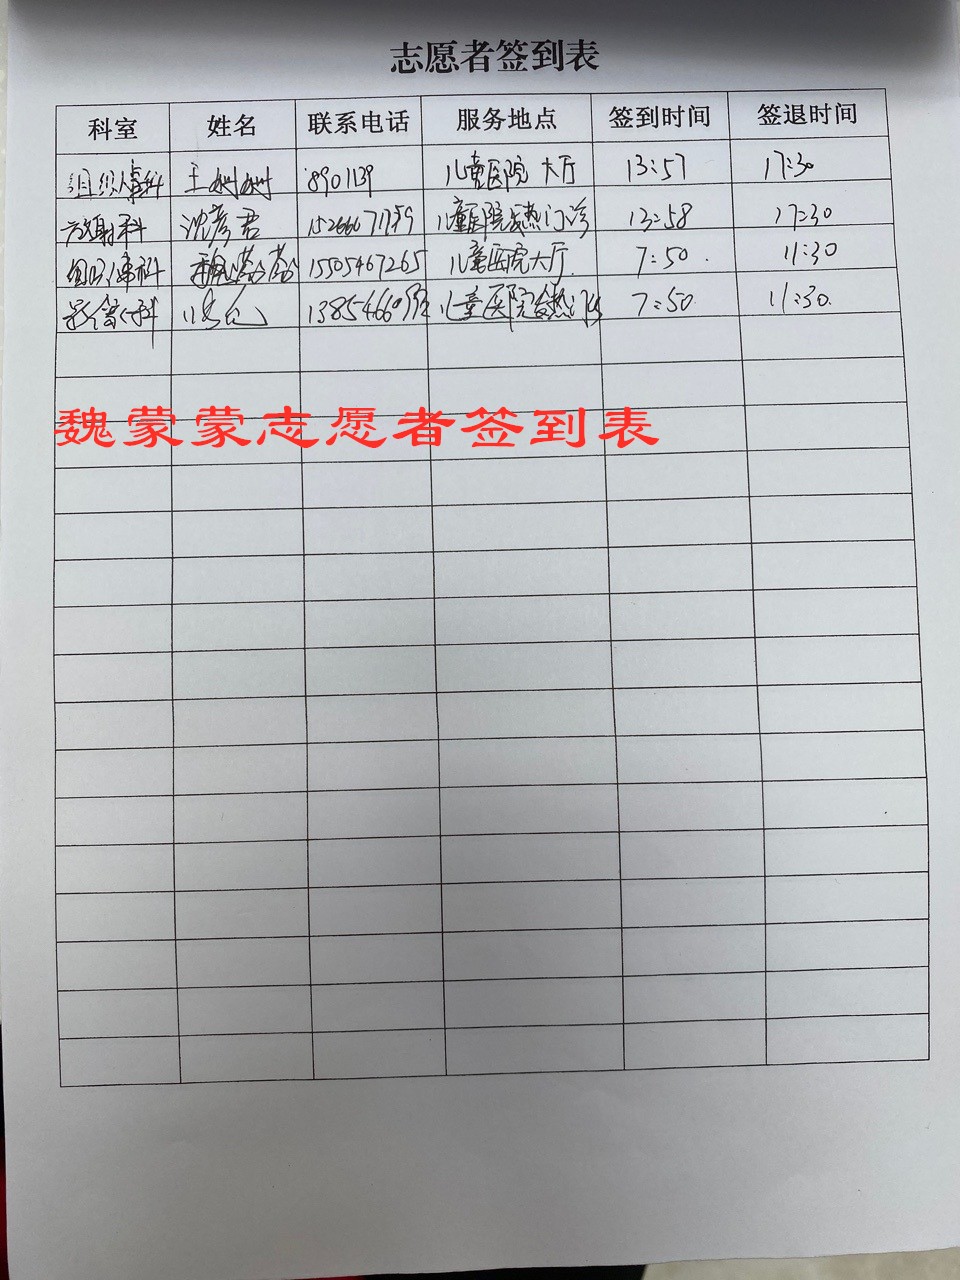 志愿者签到表
科室 姓名 联系电话 服务地点 签到时间 签退时间
组织人事科 王姗姗 8901139 儿童医院 大厅 13:57 17:30
放射科 沈彦君 儿童医院发热门诊 13:58 17:30
魏蒙蒙 15505467265 儿童医院大厅 7:50 11:30
儿童医院发热门诊 7:50 11:30
魏蒙蒙志愿者签到表